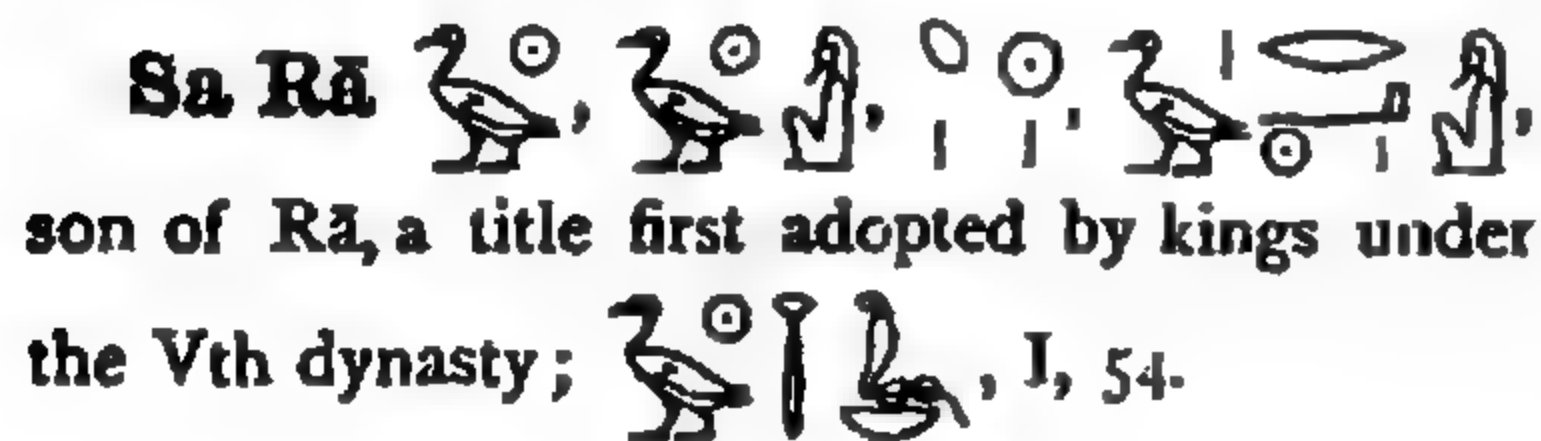 Sa Rā 𓅭𓇳, 𓅭𓇳𓀭, 𓆇𓏤𓇳𓏤, 𓅭𓏤𓂋𓂝𓇳𓏤𓀭,
son of Rā, a title first adopted by kings under
the Vth dynasty; 𓅭𓇳𓍛𓆘, I, 54.